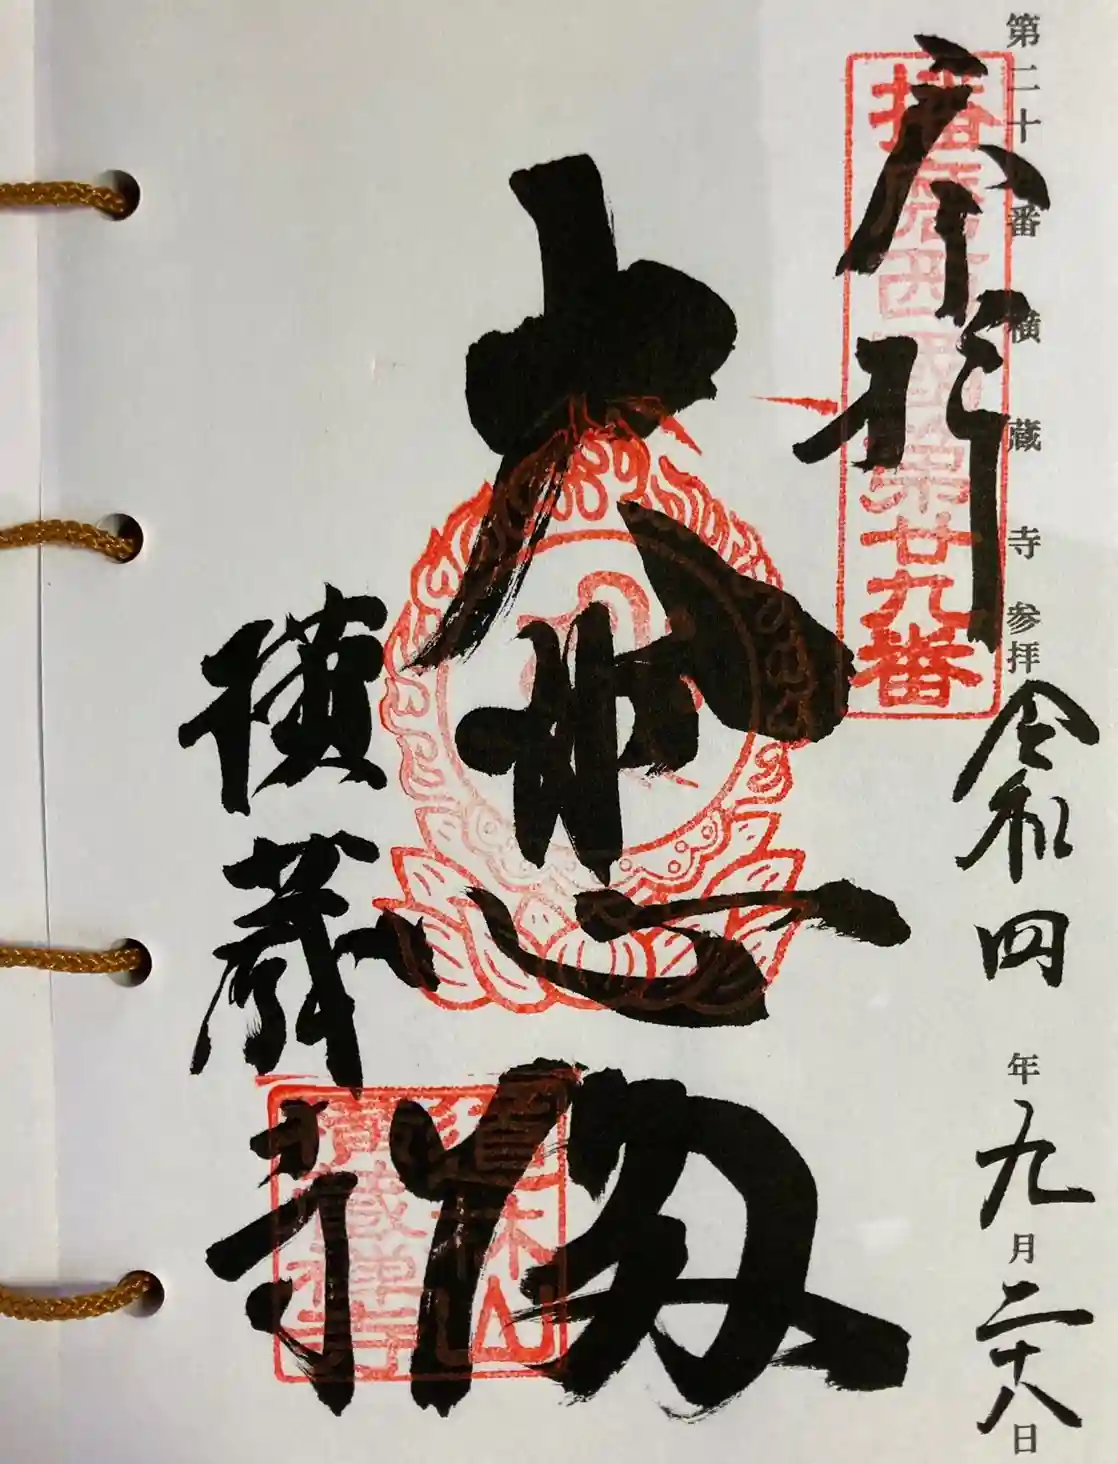 第二十番 横蔵寺参拝 令和四年九月二十八日
奉拝
播磨西國第廿九番
大悲殿
横蔵寺
道林山